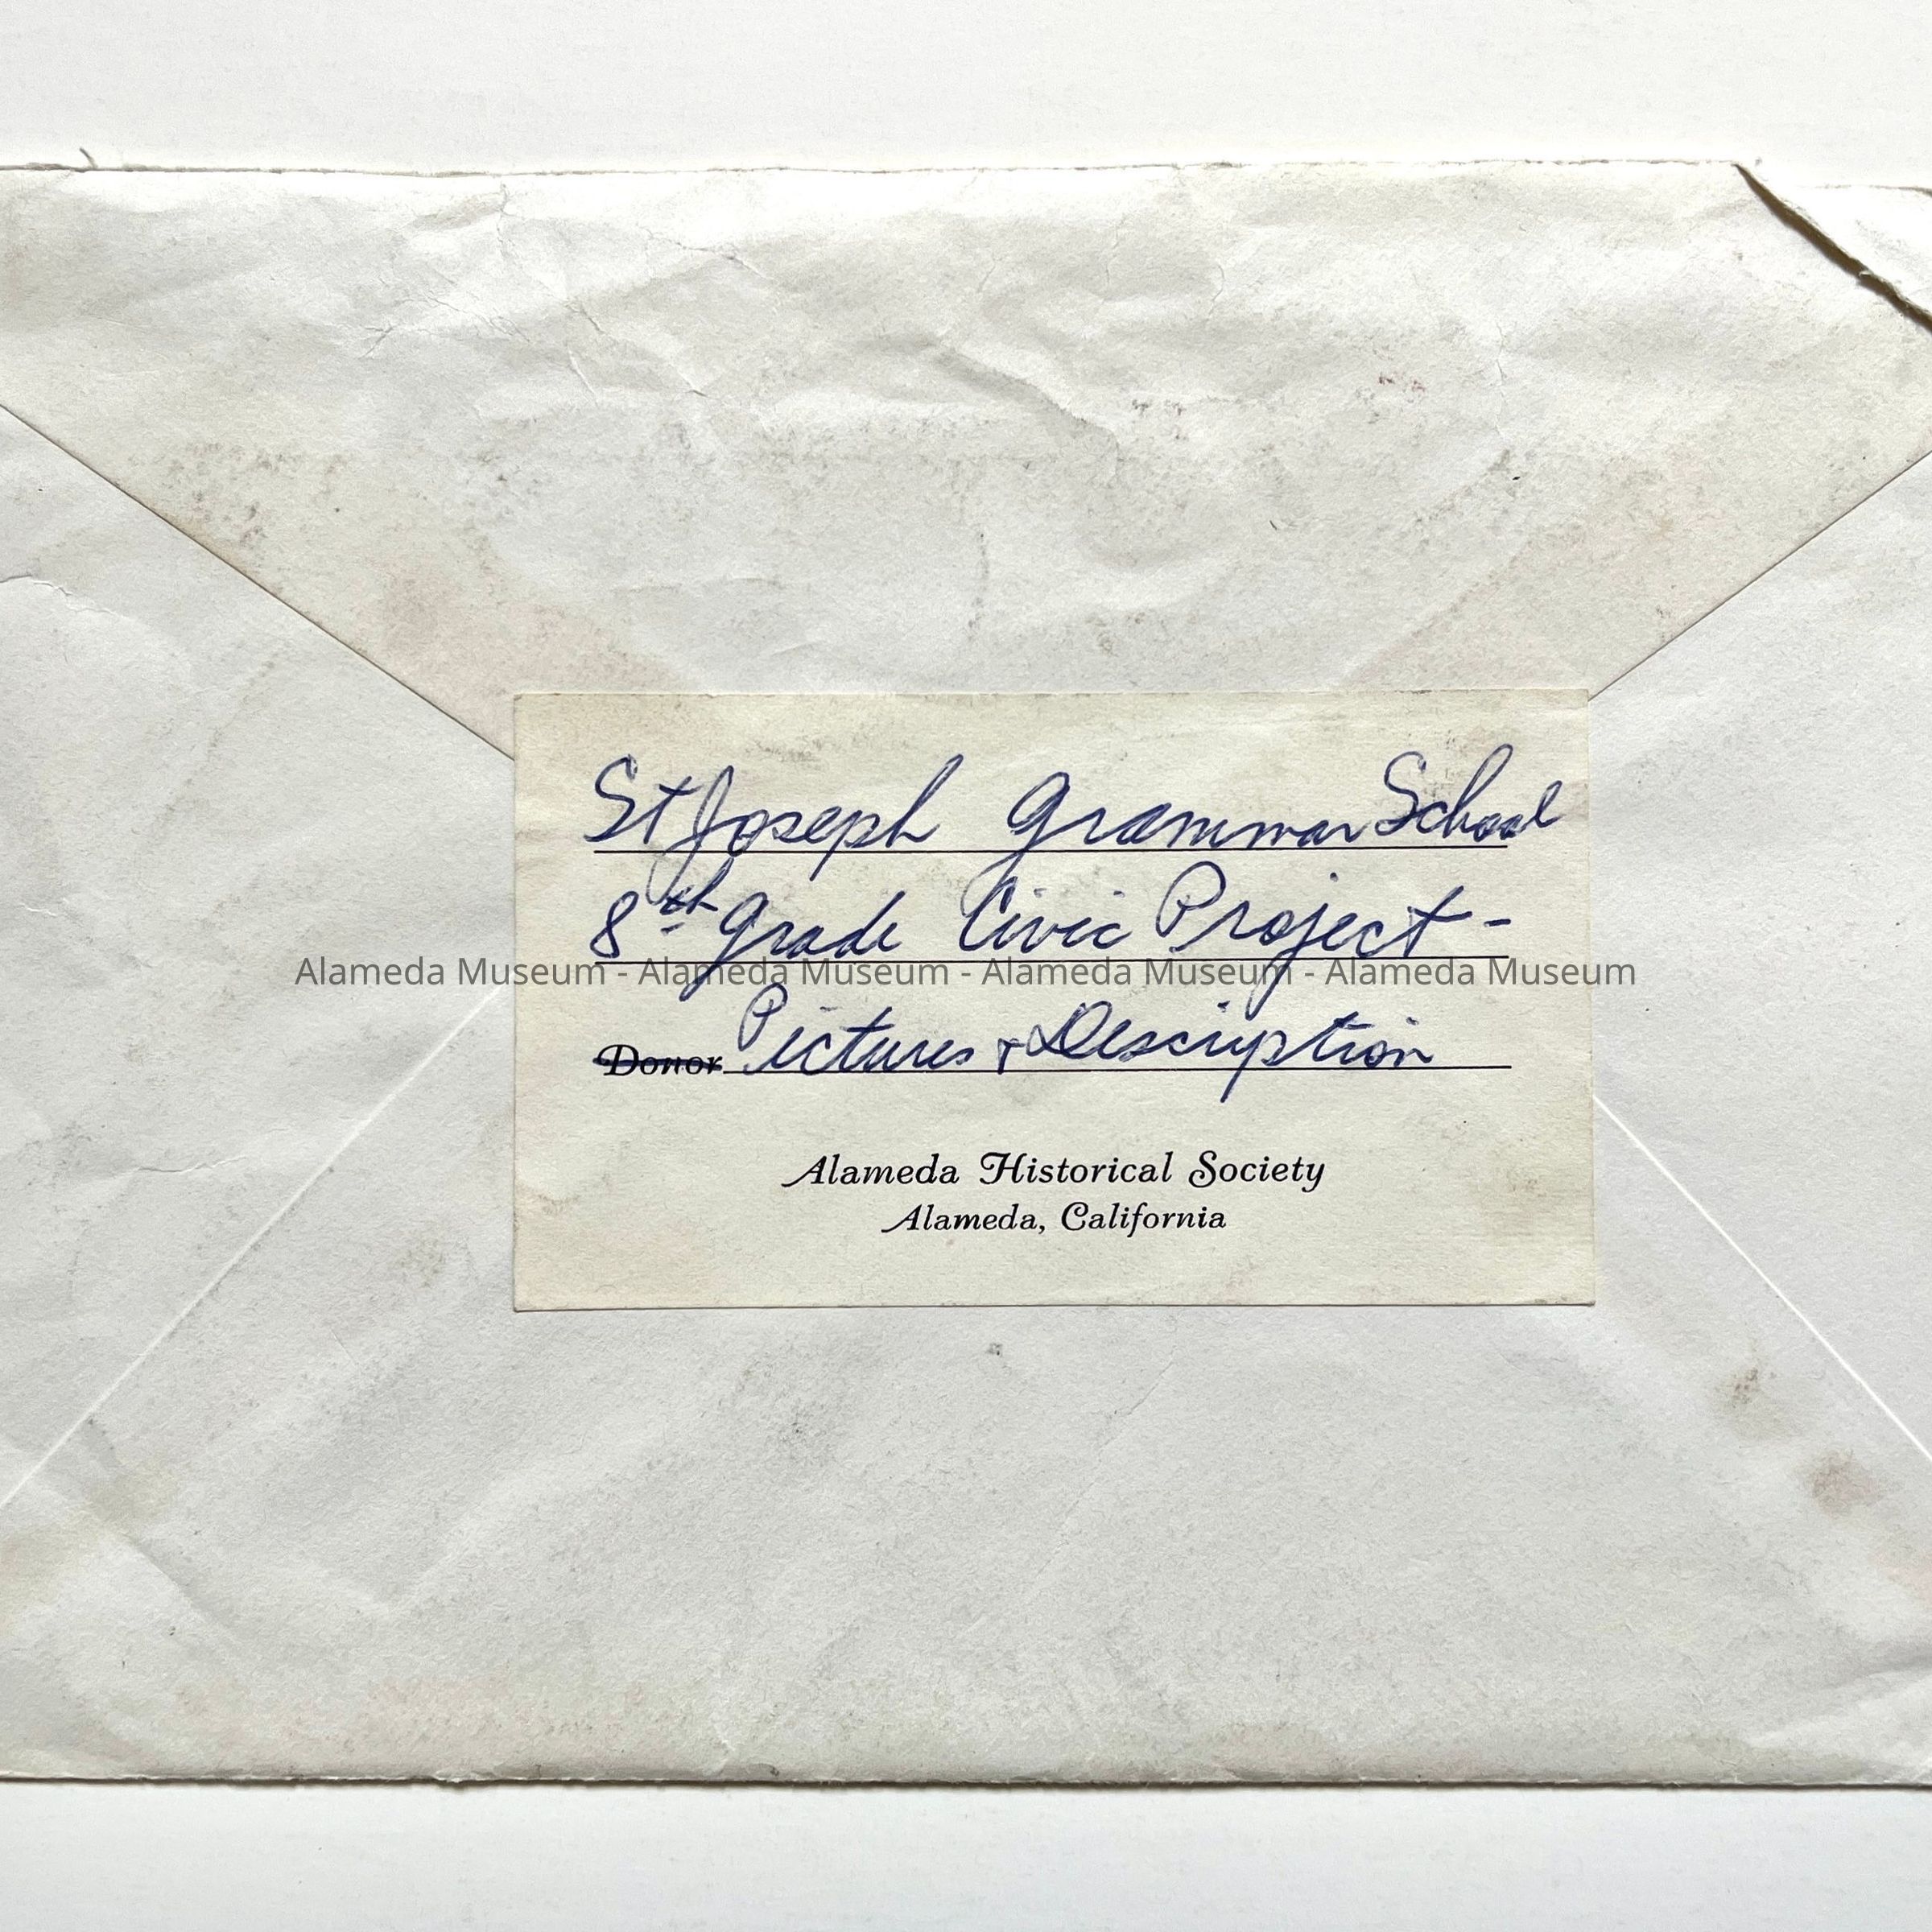 St Joseph Grammar School
8th Grade Civic Project -
Alameda Museum - Alameda Museum - Alameda Museum - Alameda Museum
Donor Pictures + Description
Alameda Historical Society
Alameda, California